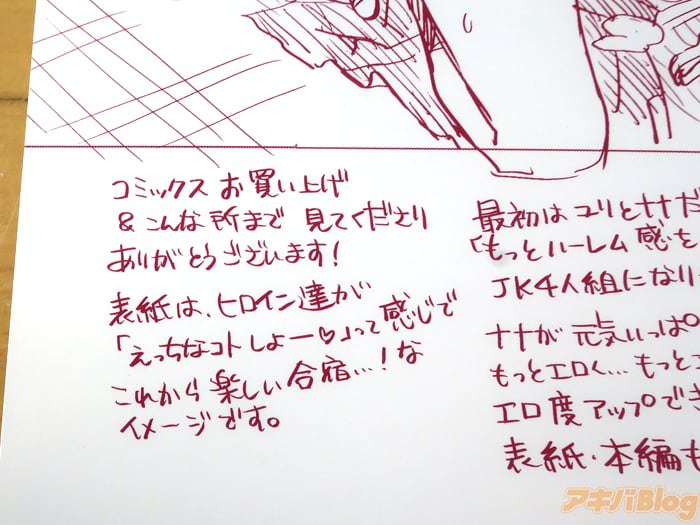 コミックス お買い上げ
& こんな所まで 見てくださり
ありがとうございます!
表紙は、ヒロイン達が
「えっちなコトしよー♡」って感じで
これから楽しい合宿…!な
イメージです。
最初は ユリとナナだ
「もっとハーレム感を
JK4人組になり
ナナが 元気いっぱ
もっとエロく…もっと
エロ度アップでき
表紙・本編も
アキバBlog